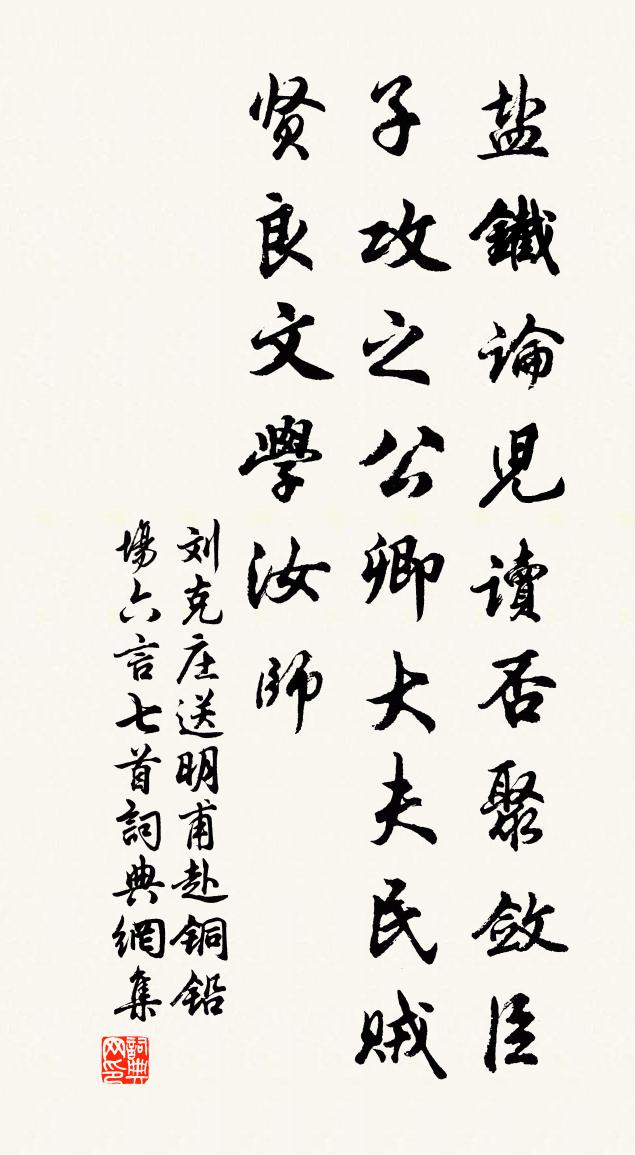 盐鐵論児讀否聚斂臣
子攻之公卿大夫民賊
贤良文學汝師
刘克庄送明甫赴铜铅
場六言七首詞典網集
詞典网印